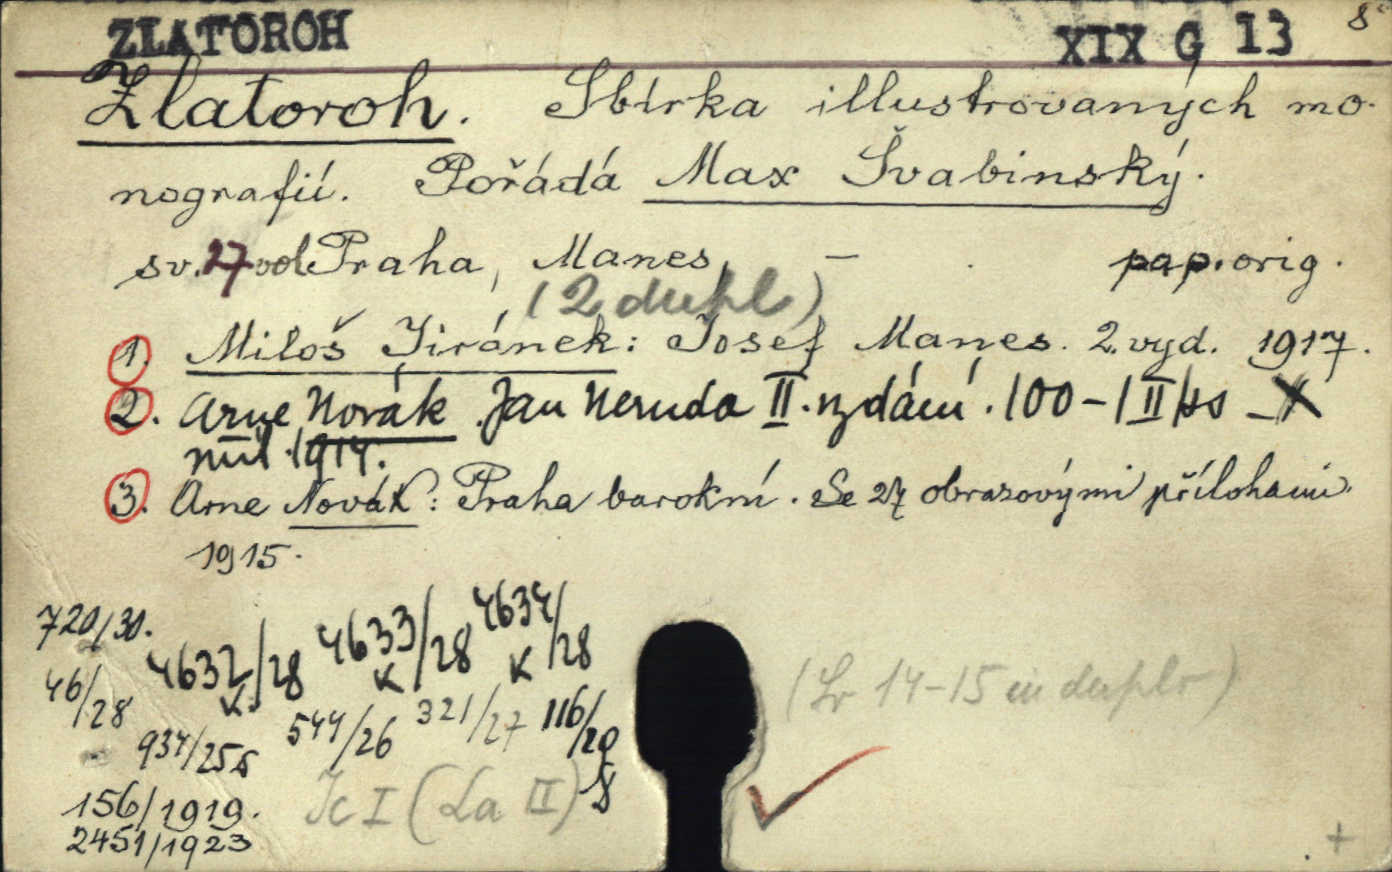 ZLATOROH XIX G 13 8°
Zlatoroh. Sbírka illustrovaných mo-
nografií. Pořádá Max Švabinský.
sv. 27 vol Praha, Manes, — pap. orig.
(2 dupl)
1. Miloš Jiránek: Josef Manes. 2. vyd. 1917.
2. Arne Novák. Jan Neruda II. vydání. 100–1 II
1914.
3. Arne Novák: Praha barokní. Se 27 obrazovými přílohami.
1915.
720/30.
4632/28 4633/28 4634/28
K K K
46/28
(Sv 14-15 in duplo)
934/25 544/26 321/27 116/20
156/1919. Ic I (La II)
2451/1923
+